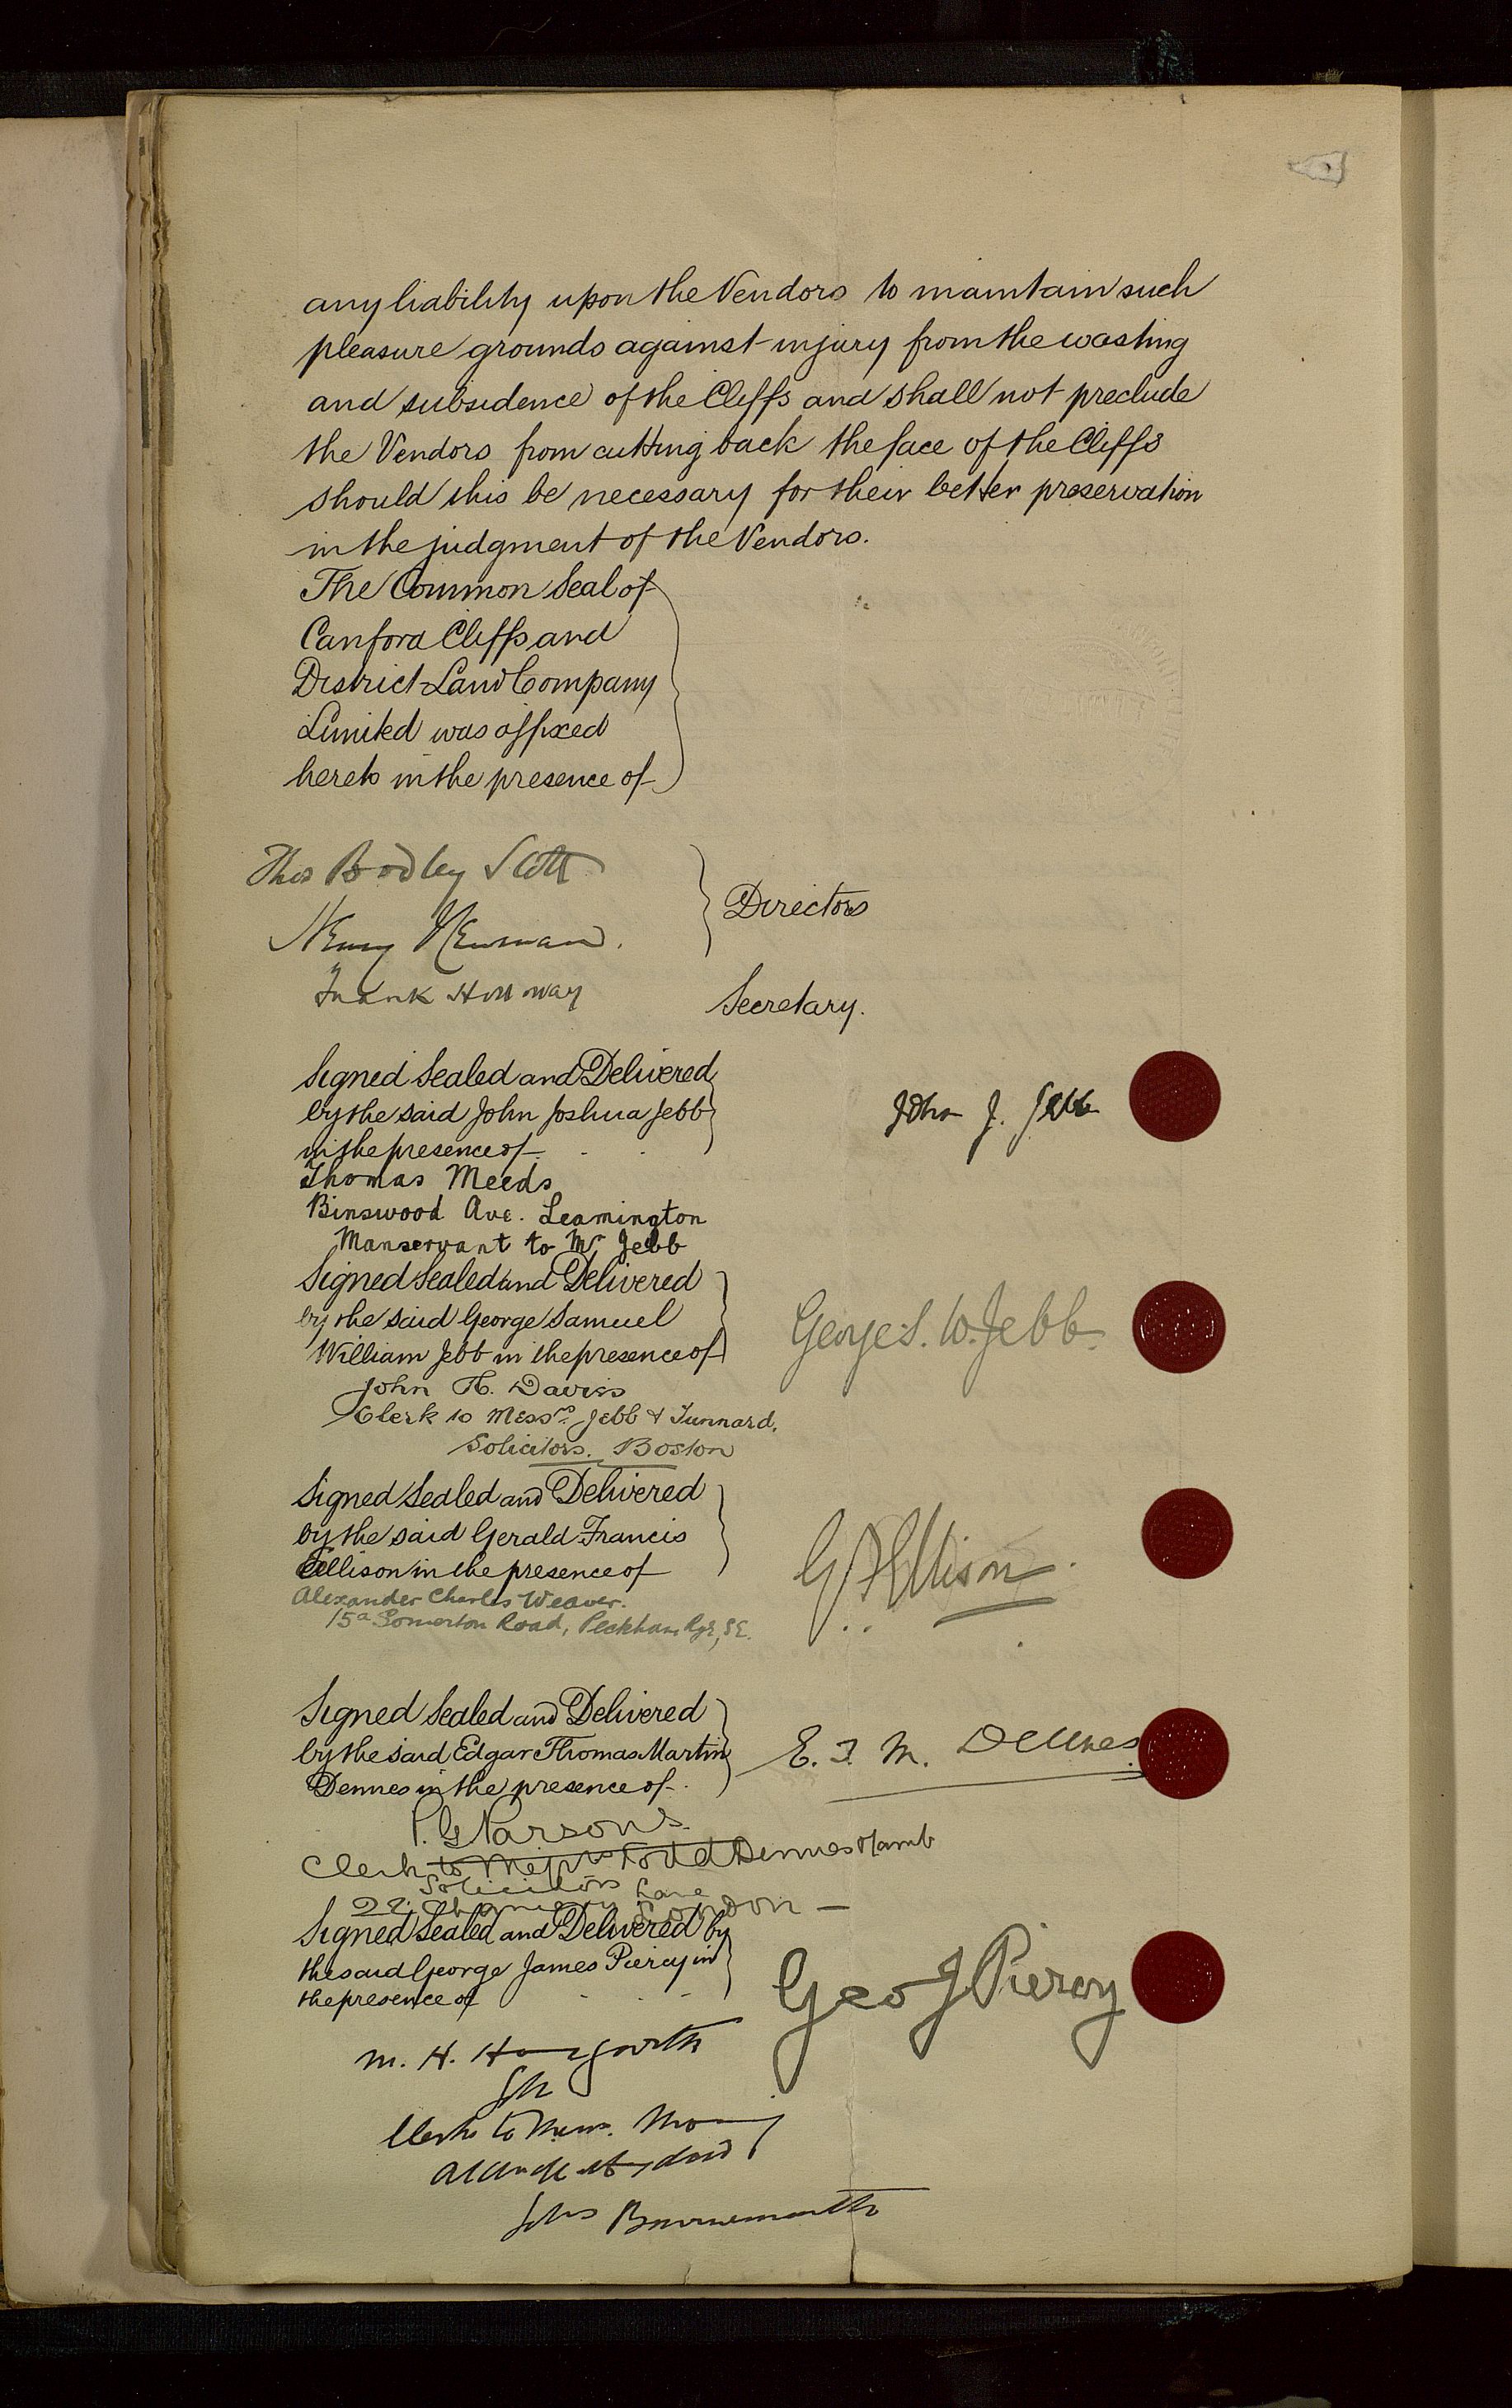 any liability upon the Vendors to maintain such
pleasure grounds against injury from the wasting
and subsidence of the Cliffs and shall not preclude
the Vendors from cutting back the face of the Cliffs
should this be necessary for their better preservation
in the judgment of the Vendors.
The Common Seal of
Canford Cliffs and
District Land Company
Limited was affixed
hereto in the presence of
Thos Bodley Scott
Henry Newman.
Directors
Frank Holloway
Secretary.
Signed Sealed and Delivered
by the said John Joshua Jebb
in the presence of
John J. Jebb
Thomas Meeds
Binswood Ave. Leamington
Manservant to Mr Jebb
Signed Sealed and Delivered
by the said George Samuel
William Jebb in the presence of
George S. W. Jebb
John H. Davies
Clerk to Messrs Jebb & Tunnard,
Solicitors. Boston
Signed Sealed and Delivered
by the said Gerald Francis
Ellison in the presence of
G F Ellison
Alexander Charles Weaver.
15a Somerton Road, Peckham Rye, S.E.
Signed Sealed and Delivered
by the said Edgar Thomas Martin
Dennes in the presence of
E. T. M. Dennes
P. G Parsons
Clerk to Messrs Todd Dennes & Lamb
Solicitors
22 Chancery Lane
London
Signed Sealed and Delivered by
the said George James Piercy in
the presence of
Geo J Piercy
M. H.
Clerk to Messrs.
Solrs Bournemouth